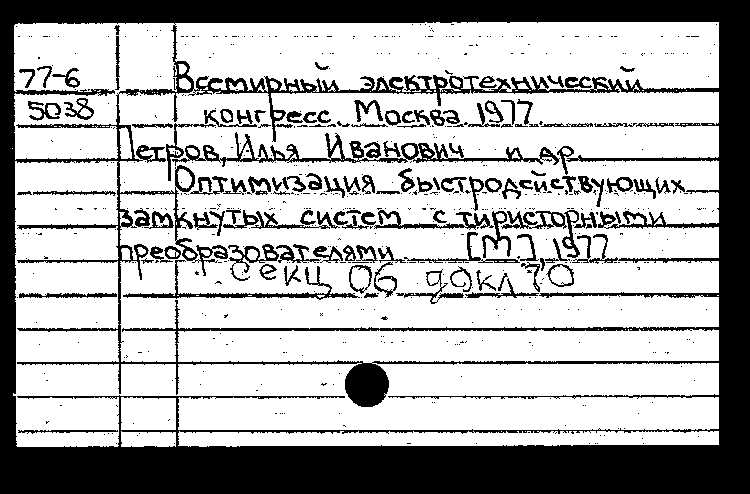 77-6 Всемирный электротехнический
5038 конгресс. Москва. 1977.
Петров, Илья Иванович и др.
Оптимизация быстродействующих
замкнутых систем с тиристорными
преобразователями. [М.], 1977
секц 06 докл 70